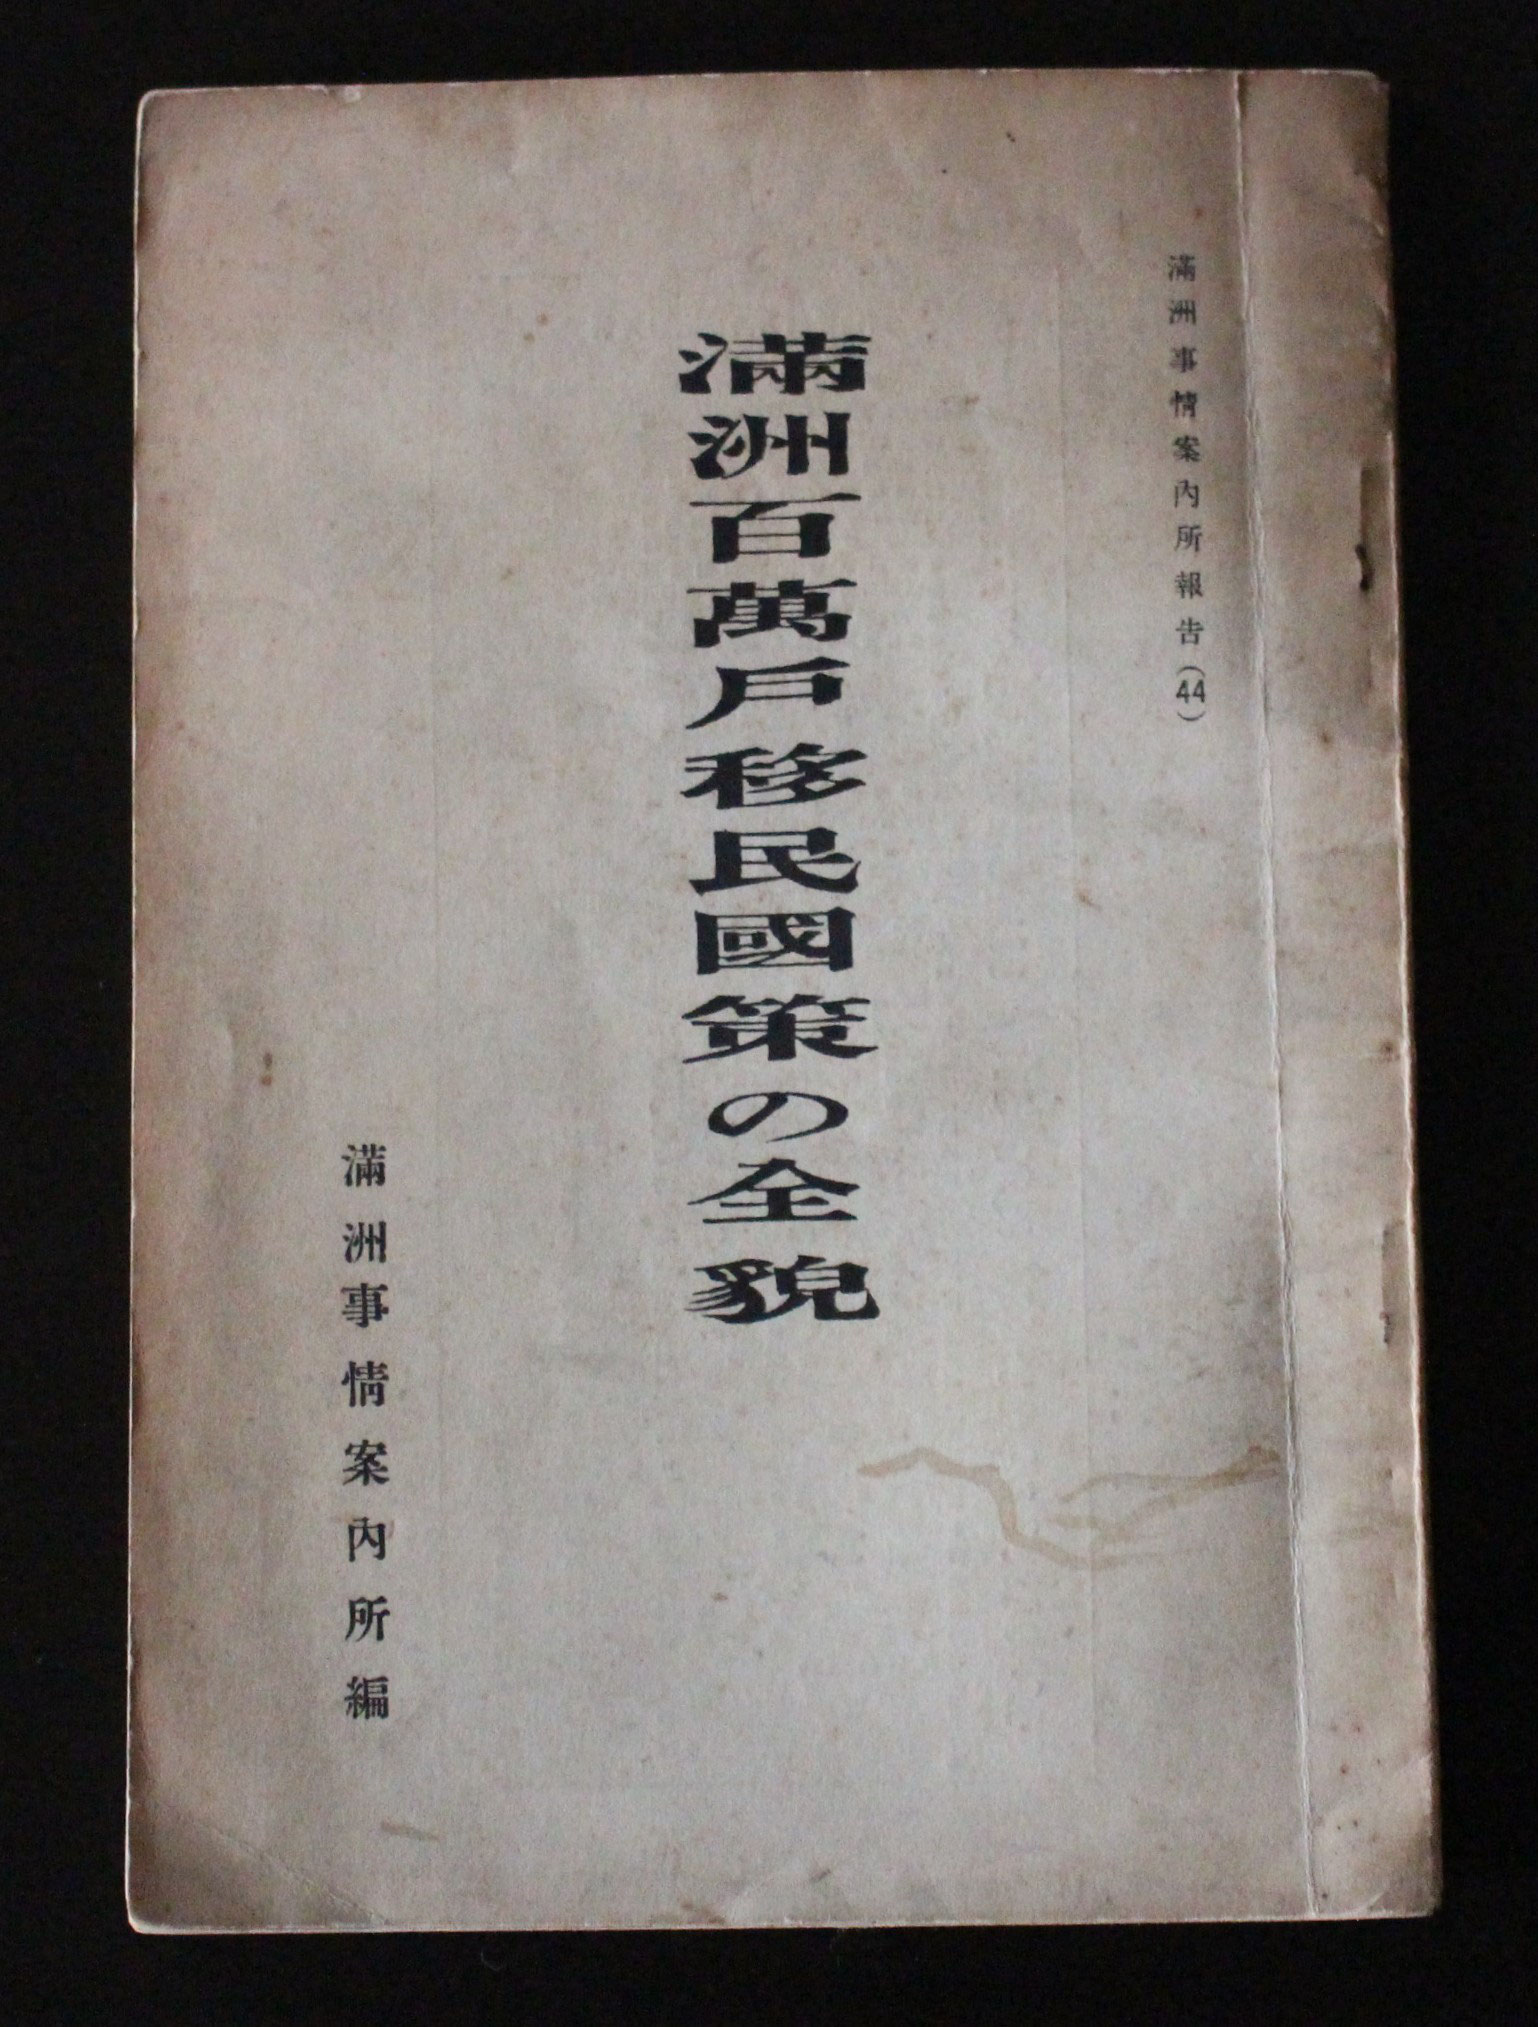 滿洲事情案內所報告(44)
滿洲百萬戶移民國策の全貌
滿洲事情案內所編